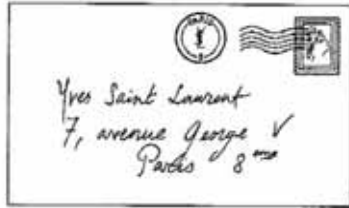 PARIS
YSL
Yves Saint Laurent
7, avenue George V
Paris 8ème